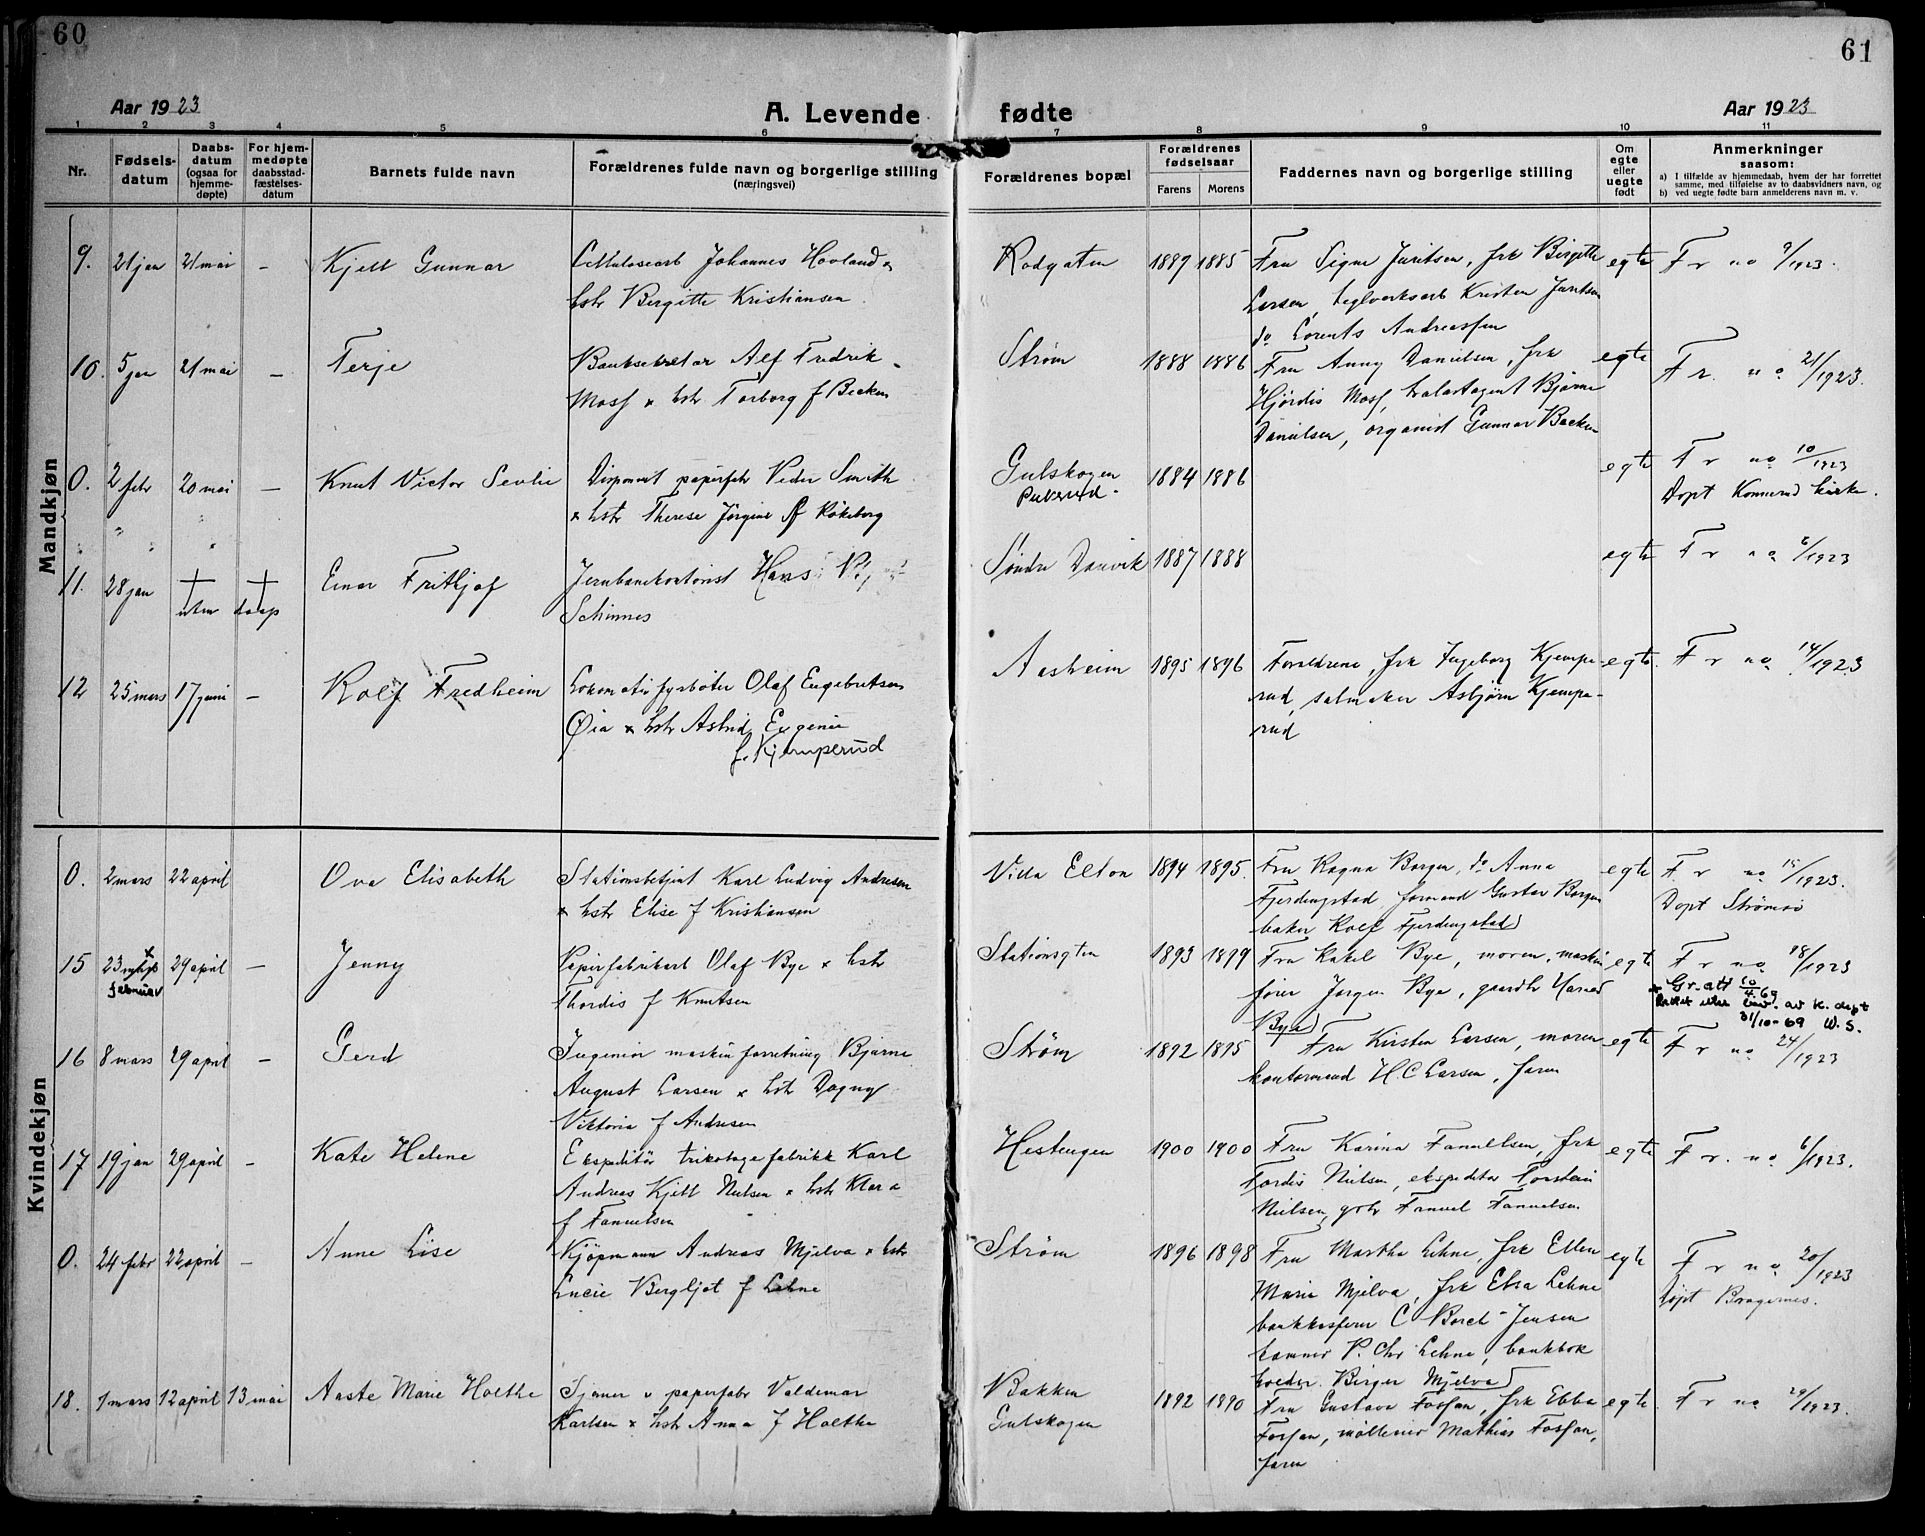 60
61
Aar 1923
A. Levende fødte
Aar 1923
1 2 3 4 5 6 7 8 9 10 11
Nr.
Fødsels-
datum
Daabs-
datum
(ogsaa for
hjemme-
døpte)
For hjem-
medøpte
daabsstad-
fæstelses-
datum
Barnets fulde navn
Forældrenes fulde navn og borgerlige stilling
(næringsvei)
Forældrenes bopæl
Forældrenes
fødselsaar
Farens
Morens
Faddernes navn og borgerlige stilling
Om
egte
eller
uegte
født
Anmerkninger
saasom:
a) I tilfælde av hjemmedaab, hvem der har forrettet
samme, med tilføielse av to daabsvidners navn, og
b) ved uegte fødte barn anmelderens navn m. v.
Mandkjøn
9. 21 jan 21 mai – Kjell Gunnar
Cellulosearb Johannes Hovland &
hstr Bergitte Kristiansen
Rodgaten 1889 1885
Fru Signe Juritsen, frk Birgitte
Larsen, teglverksarb Kristen Juritsen
do Lorents Andreassen
egte F r no 9/1923.
10. 5 jan 21 mai – Terje
Banksekretær Alf Fredrik
Moss & hstr Torborg f Becken
Strøm 1888 1886
Fru Anny Danielsen, frk
Hjørdis Moss, trælastagent Bjarne
Danielsen, organist Gunnar Becken
egte F r. no 21/1923.
0. 2 febr 20 mai – Knut Victor Sevlie
Disponent papirfabr Peder Smith
& hstr Therese Jørgine f Røkeberg
Gulskogen
Pukerud 1884 1886
egte F r no 10/1923
Døpt Konnerud kirke.
11. 28 jan † †
uten daap
Einar Fritjof
Jernbanekontorist Hans
Schinnes
Søndre Danvik 1887 1888
egte F r no 6/1923
12 25 mars 17 juni – Rolf Fredheim
Lokomotivfyrbøter Olaf Engebretsen
Øia & hstr Astrid Eugenie
f. Kjemperud
Aasheim 1895 1896
Forældrene, frk Ingeborg Kjempe-
rud, salmaker Asbjørn Kjempe-
rud
egte F r no 14/1923
Kvindekjøn
0. 2 mars 22 april Ova Elisabeth
Stationsbetjent Karl Ludvig Andresen
& hstr Elise f Kristiansen
Villa Elton 1894 1895.
Fru Ragna Borgen, do Anna
Fjerdingstad, formand Gustav Borgen
baker Rolf Fjerdingstad
egte F. r no 15/1923.
Døpt Strømsø
15 23 februar 29 april – Jenny
Papirfabrikarb Olaf Bye & hstr
Thordis f Knutsen
Stationsgten 1893 1899
Fru Rakel Bye, moren, maskin
fører Jørgen Bye, gaardbr
Bye
egte F r no 18/1923
31/10-69 W. S.
16 8 mars 29 april – Gerd
Ingeniør maskinforretning Bjarne
August Larsen & hstr Dagny
Viktoria f Andresen
Strøm 1892 1895
Fru Kirsten Larsen, moren
kontormand H.C Larsen, faren
egte F r no 24/1923
17 19 jan 29 april – Kate Helene
Ekspeditør trikotagefabrikk Karl
Andreas Kjell Nielsen & hstr Klara
f Fanuelsen
Hestengen 1900 1900
Fru Karina Fanuelsen, frk
Tordis Nielsen, ekspeditør Torstein
Nielsen, gbr Fanuel Fanuelsen
egte F r. no 6/1923.
0. 24 febr 22 april – Anne Lise
Kjøpmann Andreas Mjelva & hstr
Lucie Bergljot f Lehne
Strøm 1896 1898
Fru Martha Lehne, frk Ellen
Marie Mjelva, frk Elsa Lehne
bankkasserer C Borch-Jensen
P. Chr Lehne, bankbok
holder Birger Mjelva
egte F r no 20/1923
døpt Bragernes.
18. 1 mars 12 april 13 mai Aaste Marie Holthe
papirfabr Valdemar
Karlsen & hstr Anna f Holthe
Bakken
Gulskogen 1892 1890
Fru Gustava Fossan, frk Ebba
Fossan, Mathias Fossan,
faren
egte F r no 29/1923.